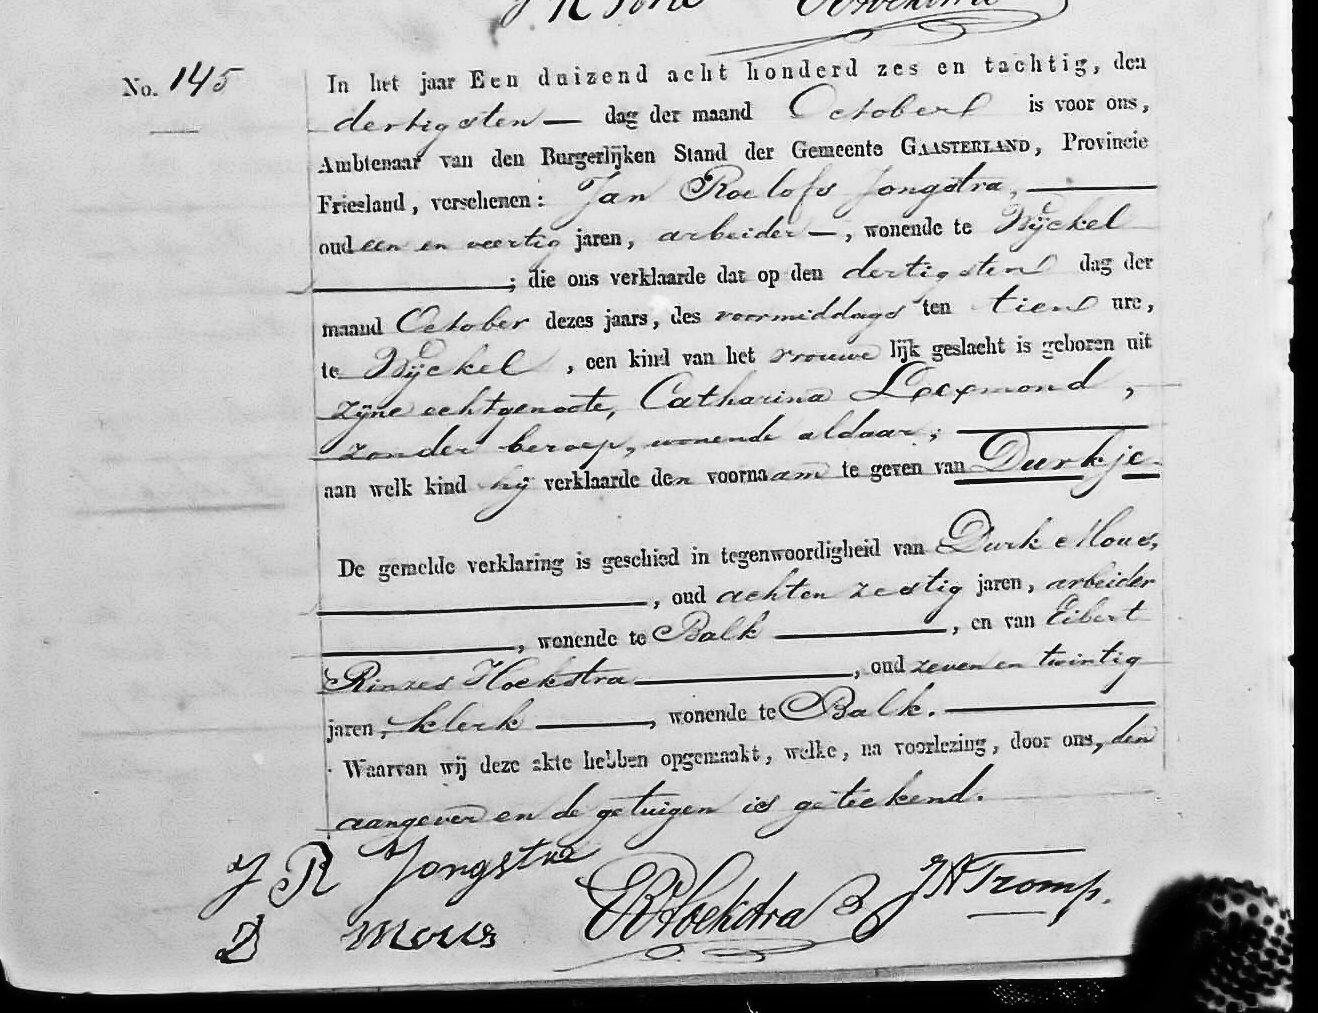 No. 145
In het jaar Een duizend acht honderd zes en tachtig, den
dertigsten — dag der maand October is voor ons,
Ambtenaar van den Burgerlijken Stand der Gemeente GAASTERLAND, Provincie
Friesland, verschenen: Jan Roelofs Jongstra,
oud een en veertig jaren, arbeider —, wonende te Wijckel
; die ons verklaarde dat op den dertigsten dag der
maand October dezes jaars, des voormiddags ten tien ure,
te Wijckel, een kind van het vrouwelijk geslacht is geboren uit
zijne echtgenoote, Catharina,
zonder beroep, wonende aldaar;
aan welk kind hij verklaarde den voornaam te geven van Durkje.
De gemelde verklaring is geschied in tegenwoordigheid van Durk Mous,
, oud acht en zestig jaren, arbeider
, wonende te Balk, en van Eibert
Rinzes Hoekstra, oud zeven en twintig
jaren, klerk, wonende te Balk.
Waarvan wij deze akte hebben opgemaakt, welke, na voorlezing, door ons, den
aangever en de getuigen is geteekend.
J R Jongstra
D Mous
ER Hoekstra
Tromp.